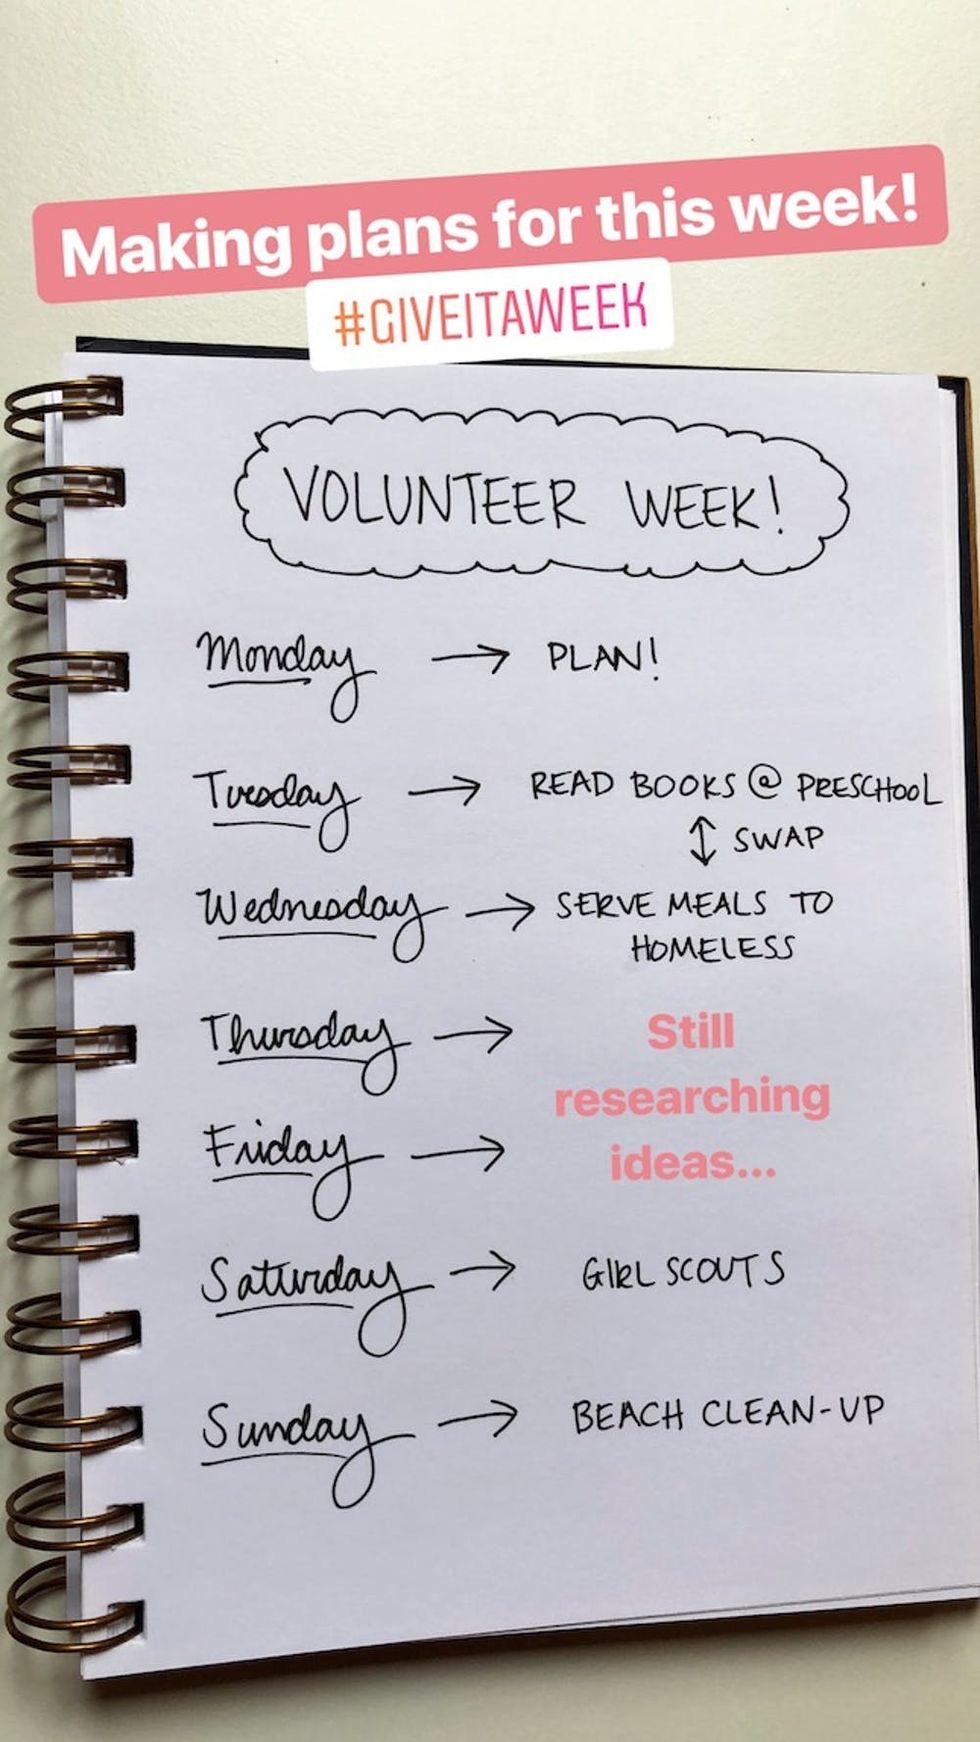 Making plans for this week!
#GIVEITAWEEK
VOLUNTEER WEEK!
Monday → PLAN!
Tuesday → READ BOOKS @ PRESCHOOL
↕ SWAP
Wednesday → SERVE MEALS TO
HOMELESS
Thursday → Still
researching
Friday → ideas...
Saturday → GIRL SCOUTS
Sunday → BEACH CLEAN-UP